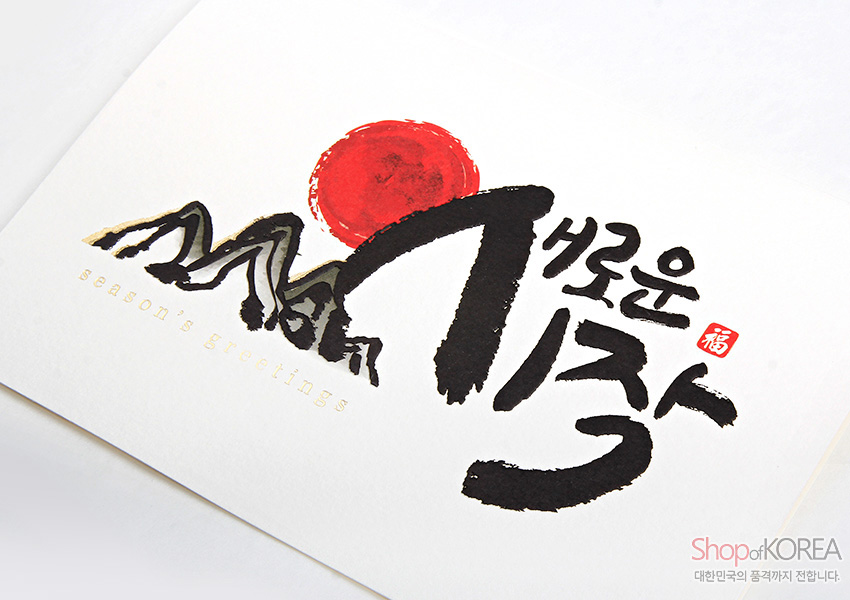 새로운
시작
福
season's greetings
ShopofKOREA
대한민국의 품격까지 전합니다.